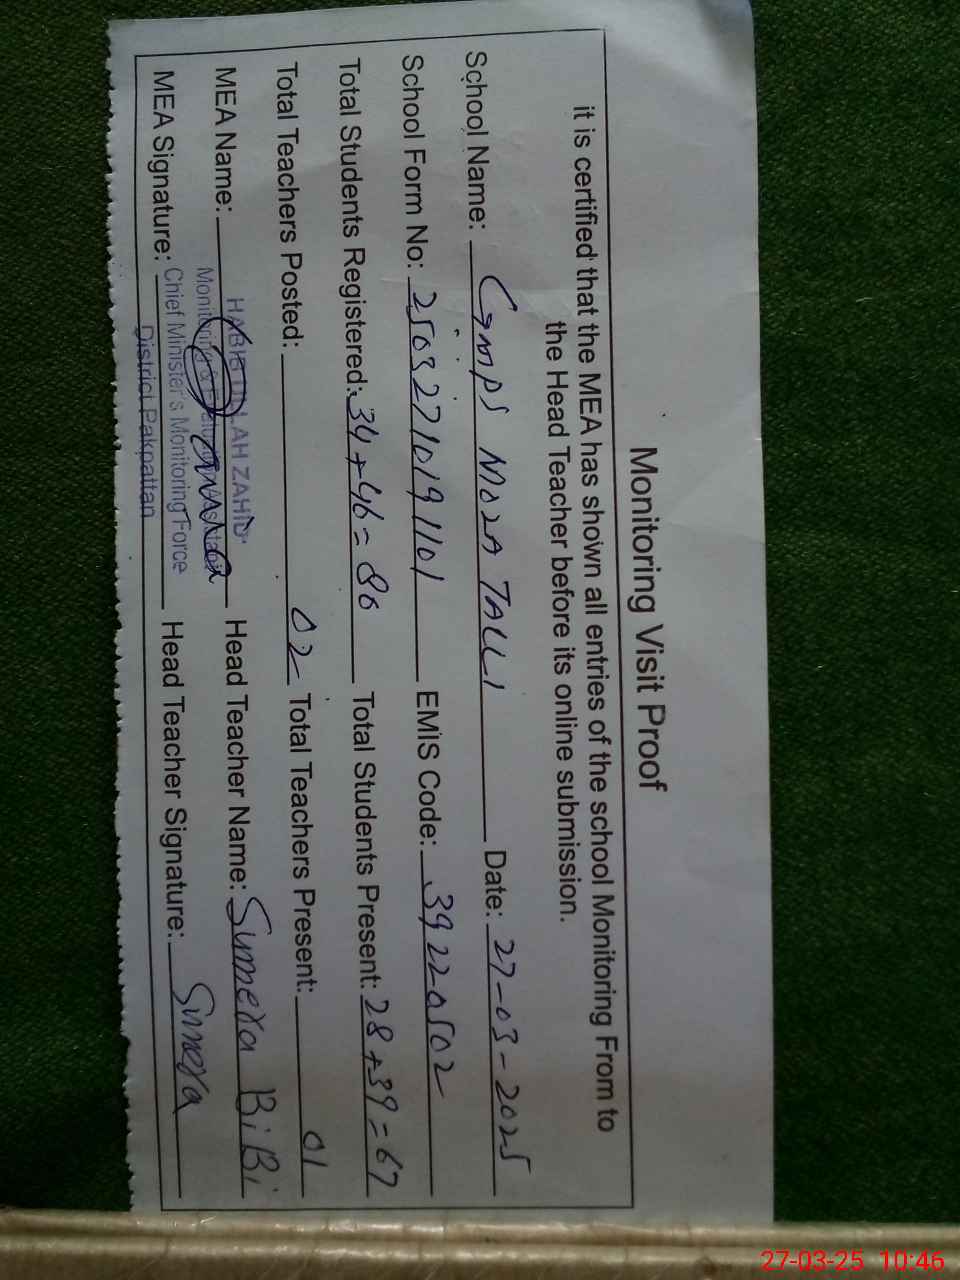 Monitoring Visit Proof
it is certified that the MEA has shown all entries of the school Monitoring From to
the Head Teacher before its online submission.
School Name: GMPS MOZA TALLI Date: 27-03-2025
School Form No: 25032710191101 EMIS Code: 39220502
Total Students Registered: 34+46=80 Total Students Present: 28+39=67
Total Teachers Posted: 02 Total Teachers Present: 01
MEA Name: HABIB ULLAH ZAHID Head Teacher Name: Sumera BiBi
Monitoring &
MEA Signature: Chief Minister's Monitoring Force Head Teacher Signature: Sumera
District Pakpattan
27-03-25 10:46